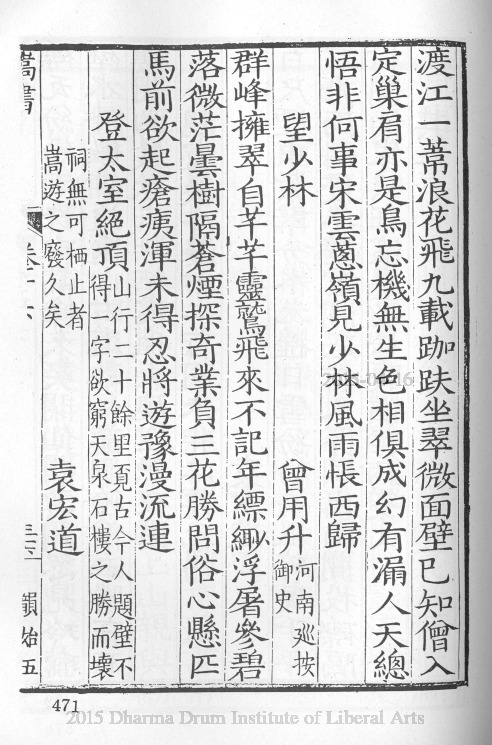 渡江一葦浪花飛九載跏趺坐翠微面壁已知僧入
定巢肩亦是鳥忘機無生色相俱成幻有漏人天總
悟非何事宋雲蔥嶺見少林風雨悵西歸
望少林 曾用升 河南巡按御史
群峰擁翠自芊芊靈鷲飛來不記年縹緲浮屠參碧
落微茫曇樹隔蒼煙探奇業負三花勝問俗心懸匹
馬前欲起瘡痍渾未得忍將遊豫漫流連
登太室絕頂 山行二十餘里覓古今人題壁不
得一字欲窮天泉石樓之勝而壞
祠無可栖止者
嵩遊之廢久矣
袁宏道
嵩書 卷十下 韻始五
471
2015 Dharma Drum Institute of Liberal Arts